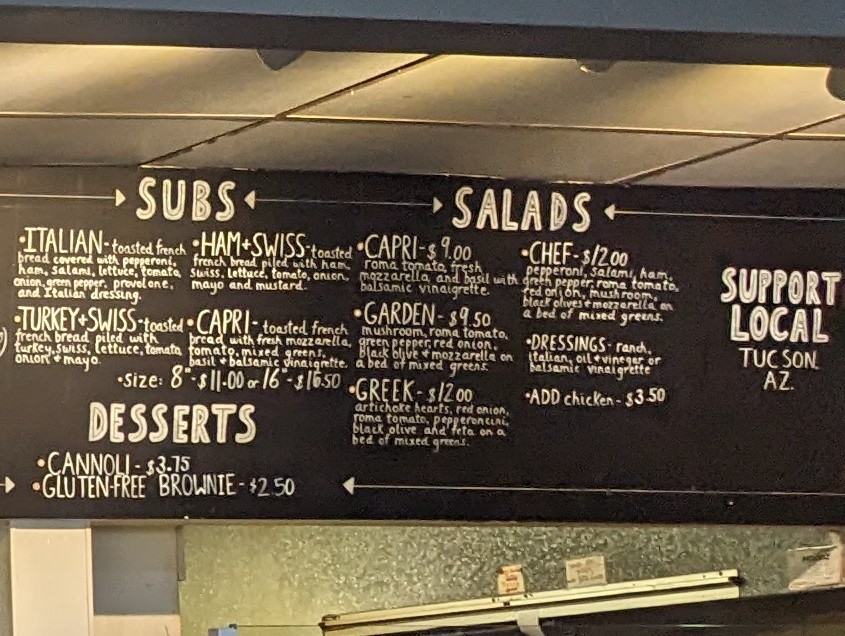 SUBS
•ITALIAN- toasted french
bread covered with pepperoni,
ham, salami, lettuce, tomato,
onion, green pepper, provolone,
and Italian dressing.
•HAM+SWISS-toasted
french bread piled with ham,
swiss, lettuce, tomato, onion,
mayo and mustard.
•TURKEY+SWISS-toasted
french bread piled with
turkey, swiss, lettuce, tomato
onion + mayo.
•CAPRI- toasted french
bread with fresh mozzarella,
tomato, mixed greens,
basil + balsamic vinaigrette.
•Size: 8"-$11.00 or 16"-$16.50
DESSERTS
•CANNOLI-$3.75
•GLUTEN-FREE BROWNIE-$2.50
SALADS
•CAPRI-$9.00
roma tomato, fresh
mozzarella and basil with
balsamic vinaigrette.
•GARDEN-$9.50
mushroom, roma tomato,
green pepper, red onion,
black olive + mozzarella on
a bed of mixed greens.
•GREEK-$12.00
artichoke hearts, red onion,
roma tomato, pepperoncini,
black olive and feta on a
bed of mixed greens.
•CHEF-$12.00
pepperoni, salami, ham,
green pepper, roma tomato,
red onion, mushroom,
black olives + mozzarella on
a bed of mixed greens.
•DRESSINGS- ranch,
italian, oil + vinegar or
balsamic vinaigrette
•ADD chicken-$3.50
SUPPORT
LOCAL
TUCSON
AZ.